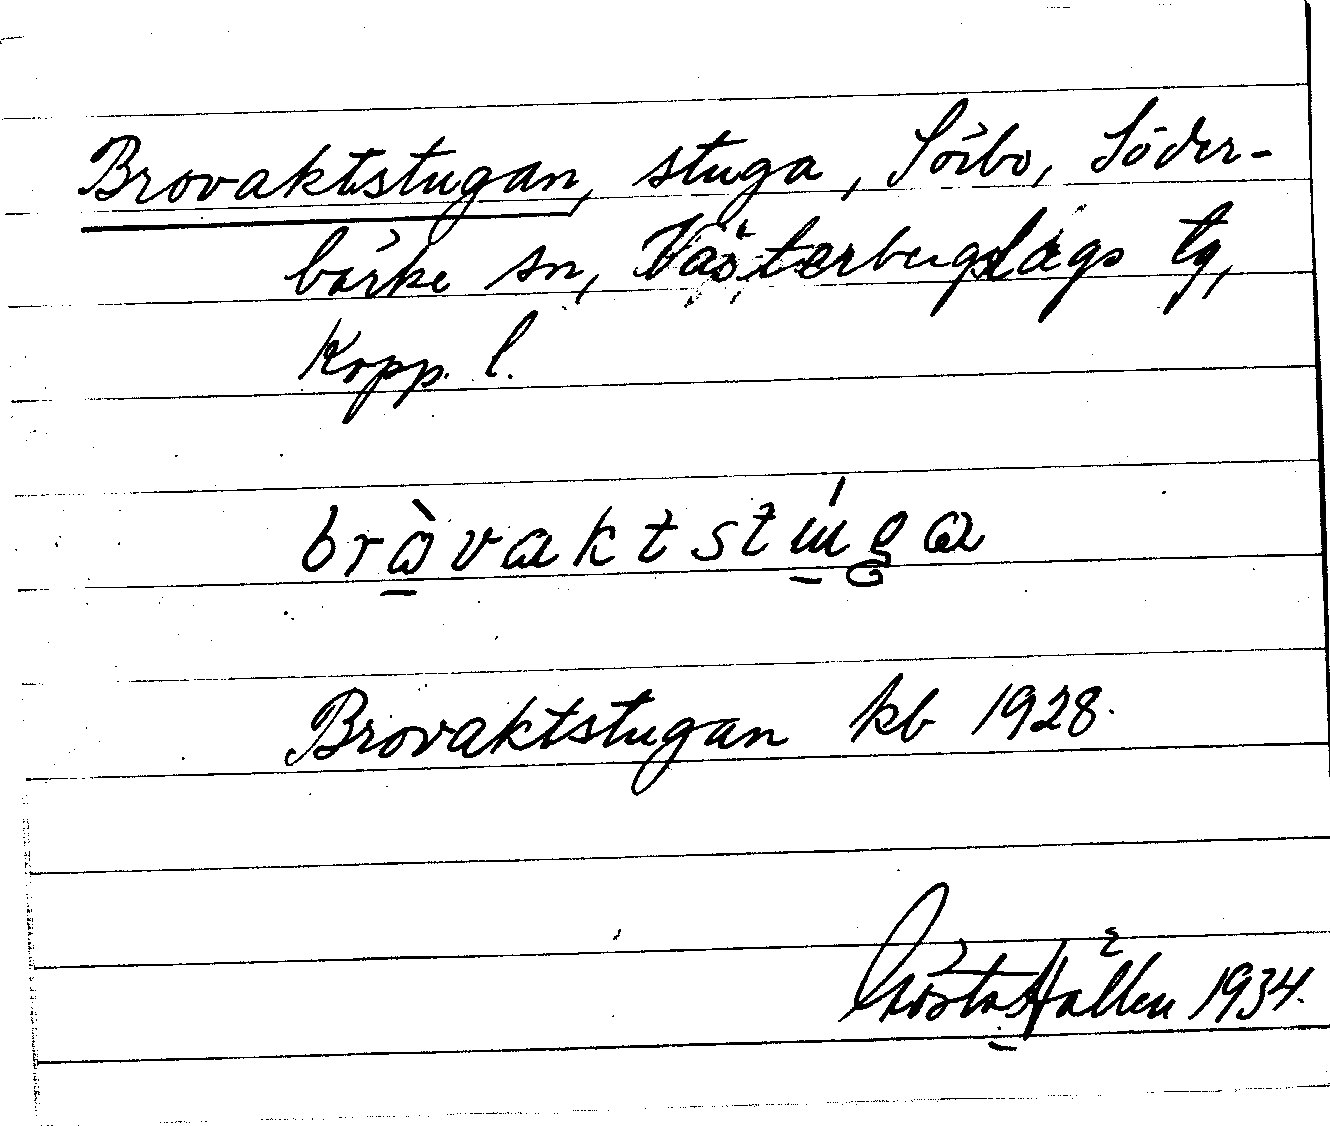 Brovaktstugan, stuga, Sörbo, Söder-
bärke sn, Västerbergslags tg,
Kopp. l.
bròvaktstúga
Brovaktstugan kb 1928.
Gösta Hållen 1934.